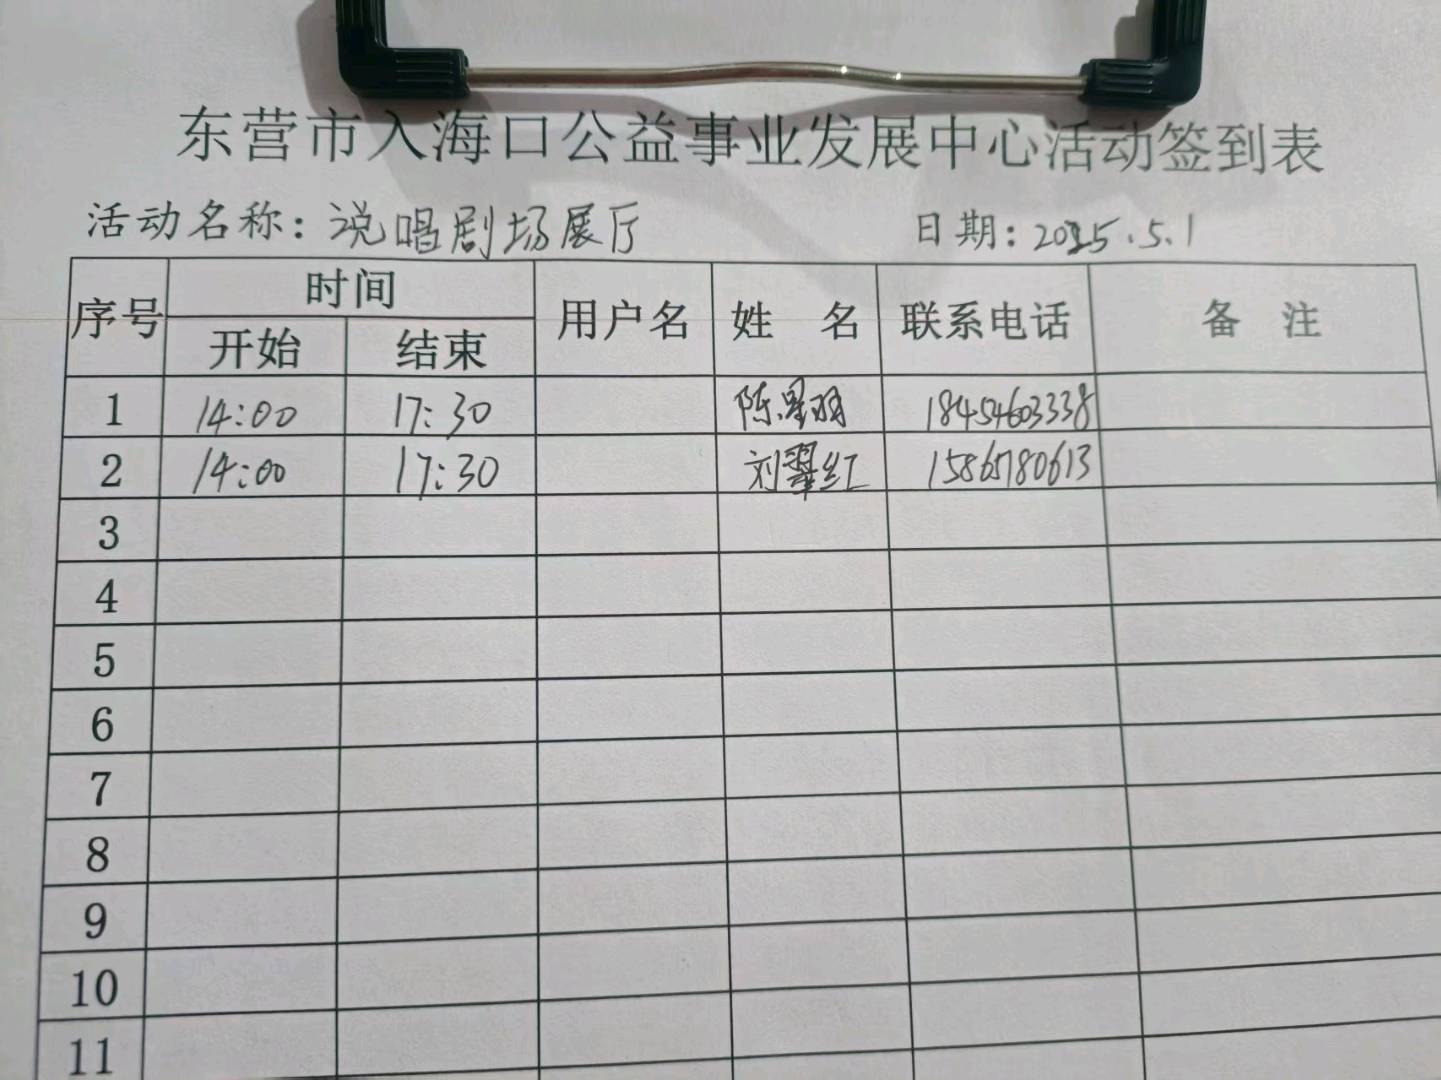 东营市入海口公益事业发展中心活动签到表
活动名称：说唱剧场展厅 日期：2025.5.1
序号 时间 用户名 姓 名 联系电话 备 注
开始 结束
1 14:00 17:30 陈星羽 18454603338
2 14:00 17:30 刘翠红 15865780613
3
4
5
6
7
8
9
10
11